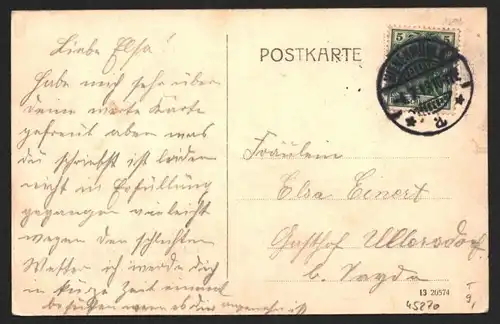 Liebe Elsa!
Habe mich sehr über
deine werte Karte
gefreut aber was
du schriebst ist leider
nicht in Erfüllung
gegangen vieleicht
wegen den schlechten
Wetter ich werde dich
in kurze Zeit einmal
besuchen wenn es dir angenehm ist
POSTKARTE
5 5
Fräulein
Elsa Einert
Gasthof Ullersdorf
b. Sayda
13 20574
45270